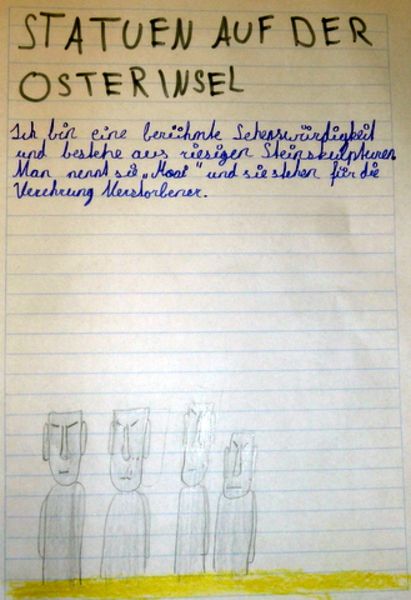 STATUEN AUF DER
OSTERINSEL
Ich bin eine berühmte Sehenswürdigkeit
und bestehe aus riesigen Steinskulpturen.
Man nennt sie „Moai" und sie stehen für die
Verehrung Verstorbener.